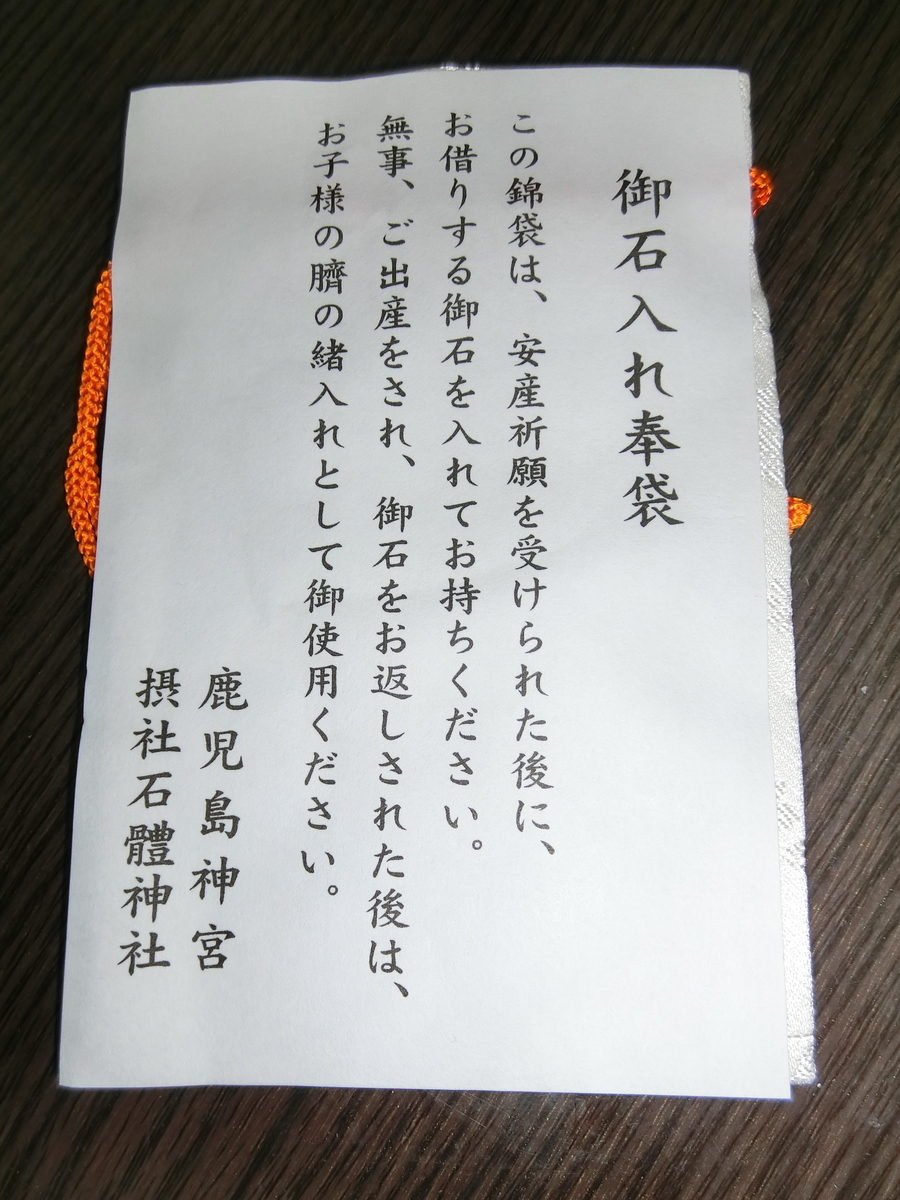 御石入れ奉袋
この錦袋は、安産祈願を受けられた後に、
お借りする御石を入れてお持ちください。
無事、ご出産をされ、御石をお返しされた後は、
お子様の臍の緒入れとして御使用ください。
鹿児島神宮
摂社石體神社